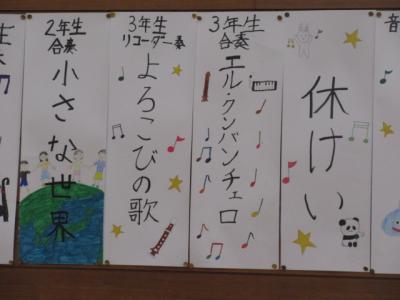 2年生
合奏
小さな世界
3年生
リコーダー奏
よろこびの歌
3年生
合奏
エル・クンバンチェロ
休けい
音